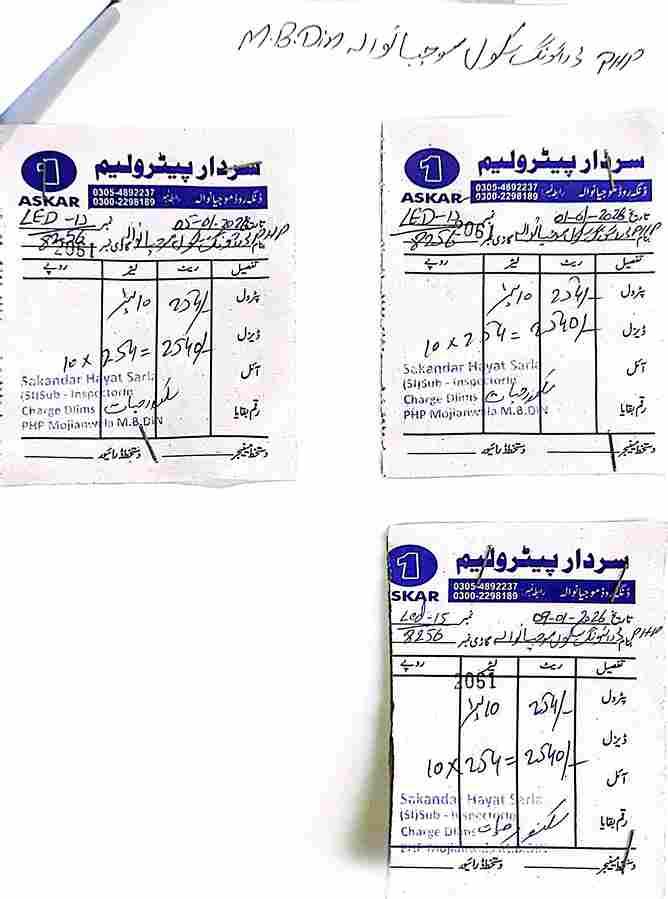 PHP ڈرائیونگ سکول موجیانوالہ M.B.Din
1
ASKAR
سردار پیٹرولیم
ڈنگہ روڈ موجیانوالہ رابطہ نمبر 0305-4892237
0300-2298189
تاریخ 05-01-2026 نمبر
2051
بنام PHP ڈرائیونگ سکول موجیانوالہ گاڑی نمبر 8256
تفصیل ریٹ لیٹر روپے
پٹرول 254/- 10 لیٹر
ڈیزل
10 x 254 = 2540/-
آئل
رقم بقایا
Sakandar Hayat Sarla
(SI)Sub - Inspectorie
Charge Dlims
PHP Mojianwala M.B.DIN
سکندر حیات
دستخط منیجر دستخط ڈرائیور
1
ASKAR
سردار پیٹرولیم
ڈنگہ روڈ موجیانوالہ رابطہ نمبر 0305-4892237
0300-2298189
تاریخ 01-01-2026 نمبر
2051
بنام PHP ڈرائیونگ سکول موجیانوالہ گاڑی نمبر 8256
تفصیل ریٹ لیٹر روپے
پٹرول 254/- 10 لیٹر
ڈیزل
10 x 254 = 2540/-
آئل
رقم بقایا
Sakandar Hayat Sarla
(SI)Sub - Inspectorie
Charge Dlims
PHP Mojianwala M.B.DIN
سکندر حیات
دستخط منیجر دستخط ڈرائیور
1
SKAR
سردار پیٹرولیم
ڈنگہ روڈ موجیانوالہ رابطہ نمبر 0305-4892237
0300-2298189
تاریخ 09-01-2026 نمبر LED-15
بنام PHP ڈرائیونگ سکول موجیانوالہ گاڑی نمبر 8256
تفصیل ریٹ لیٹر روپے
2051
پٹرول 254/- 10 لیٹر
ڈیزل
10 x 254 = 2540/-
آئل
رقم بقایا
Sakandar Hayat Sarla
(SI)Sub - Inspectorie
Charge Dlims
سکندر حیات
دستخط منیجر دستخط ڈرائیور